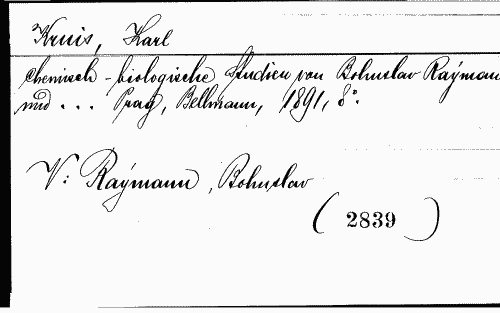 Kruis, Karl
Chemisch-biologische Studien von Bohuslav Raýmann
und ... Prag, Bellmann, 1891, 8°.
V: Raýmann, Bohuslav
(2839)